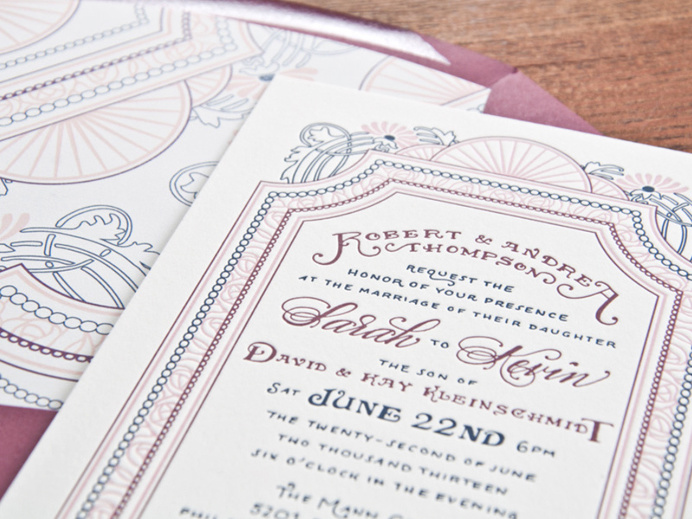 ROBERT & ANDREA
THOMPSON
REQUEST THE
HONOR OF YOUR PRESENCE
AT THE MARRIAGE OF THEIR DAUGHTER
Sarah TO Kevin
THE SON OF
DAVID & KAY KLEINSCHMIDT
SAT JUNE 22ND 6PM
THE TWENTY-SECOND OF JUNE
TWO THOUSAND THIRTEEN
SIX O'CLOCK IN THE EVENING
The MANN
5201